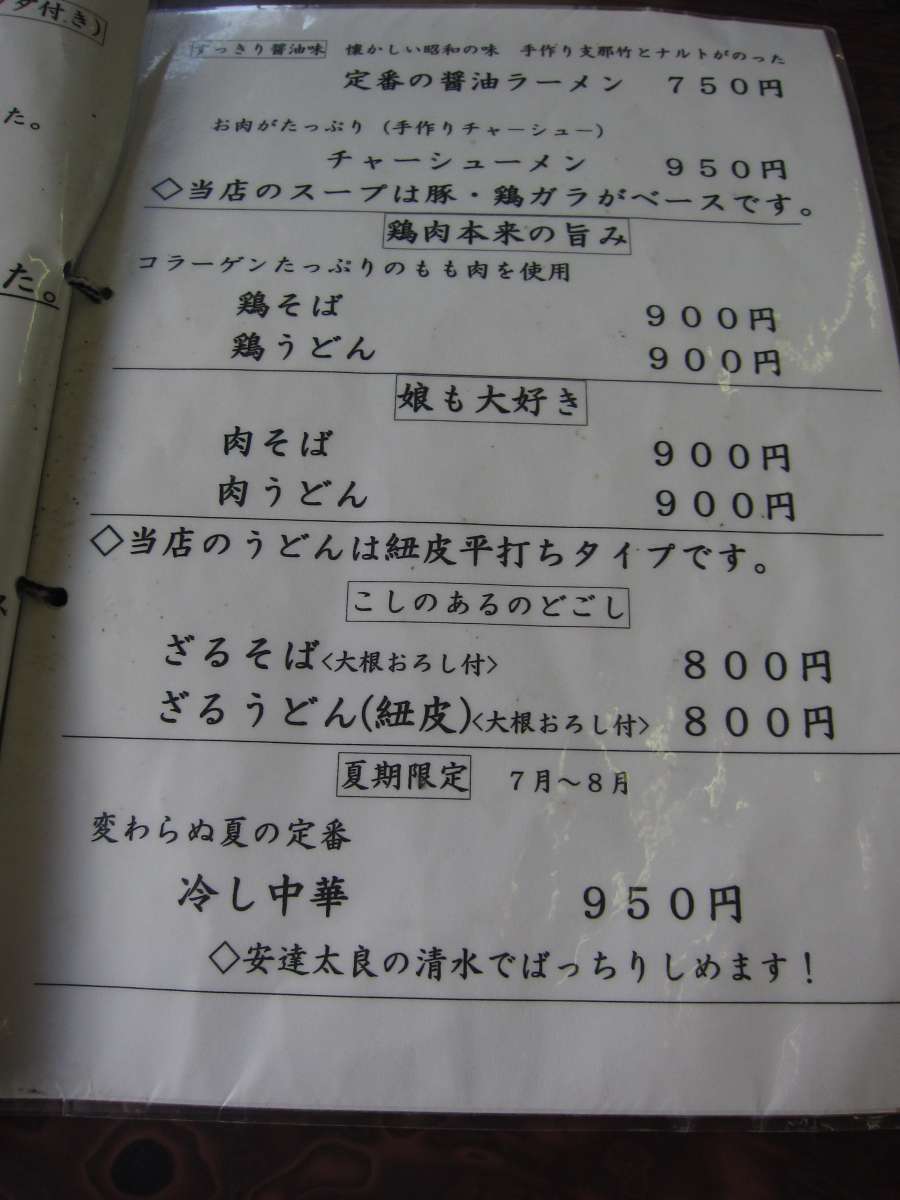 ダ付き)
た。
た。
すっきり醤油味 懐かしい昭和の味 手作り支那竹とナルトがのった
定番の醤油ラーメン 750円
お肉がたっぷり (手作りチャーシュー)
チャーシューメン 950円
◇当店のスープは豚・鶏ガラがベースです。
鶏肉本来の旨み
コラーゲンたっぷりのもも肉を使用
鶏そば 900円
鶏うどん 900円
娘も大好き
肉そば 900円
肉うどん 900円
◇当店のうどんは紐皮平打ちタイプです。
こしのあるのどごし
ざるそば<大根おろし付> 800円
ざるうどん(紐皮)<大根おろし付> 800円
夏期限定 7月~8月
変わらぬ夏の定番
冷し中華 950円
◇安達太良の清水でばっちりしめます!